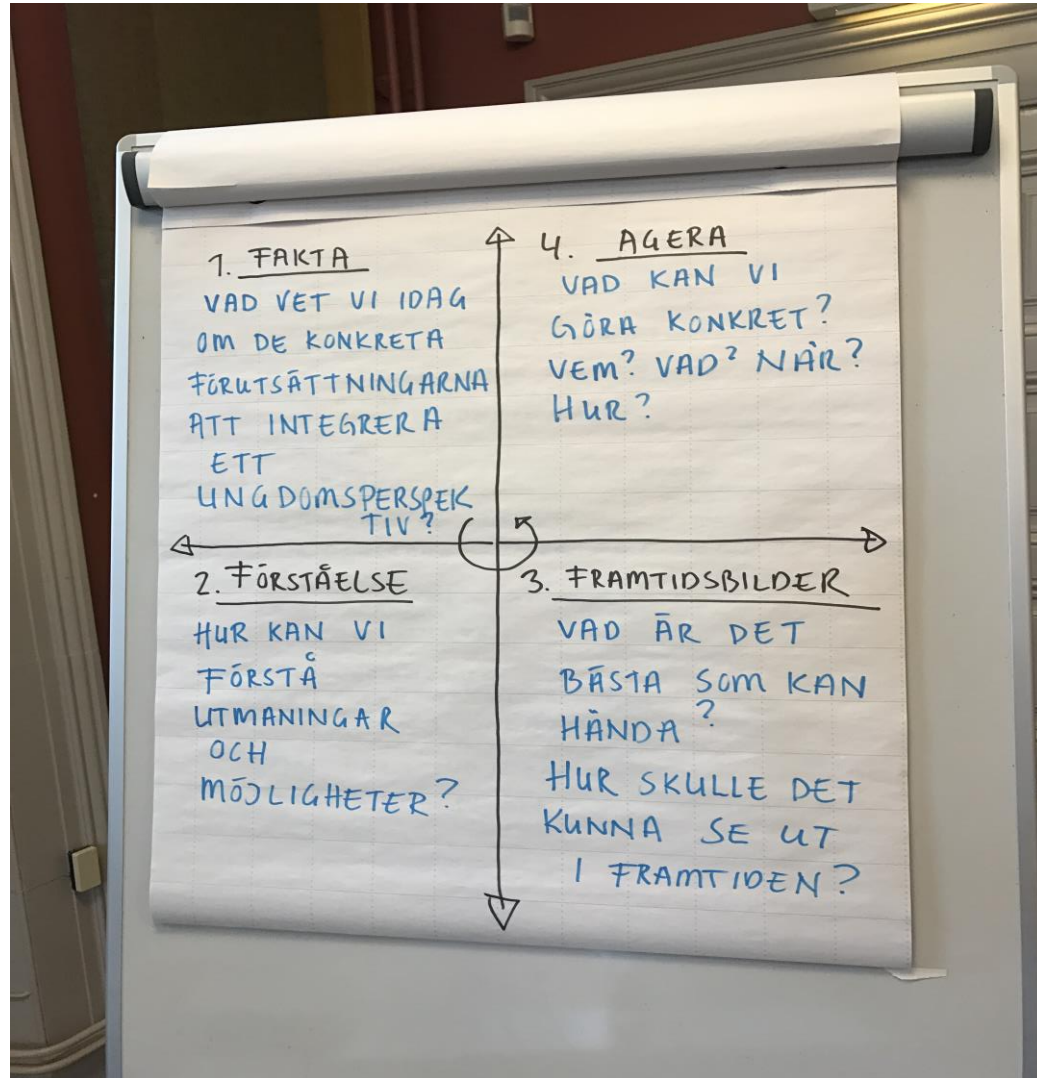 1. FAKTA
VAD VET VI IDAG
OM DE KONKRETA
FÖRUTSÄTTNINGARNA
ATT INTEGRERA
ETT
UNGDOMSPERSPEK
TIV?
2. FÖRSTÅELSE
HUR KAN VI
FÖRSTÅ
UTMANINGAR
OCH
MÖJLIGHETER?
3. FRAMTIDSBILDER
VAD ÄR DET
BÄSTA SOM KAN
HÄNDA?
HUR SKULLE DET
KUNNA SE UT
I FRAMTIDEN?
4. AGERA
VAD KAN VI
GÖRA KONKRET?
VEM? VAD? NÄR?
HUR?